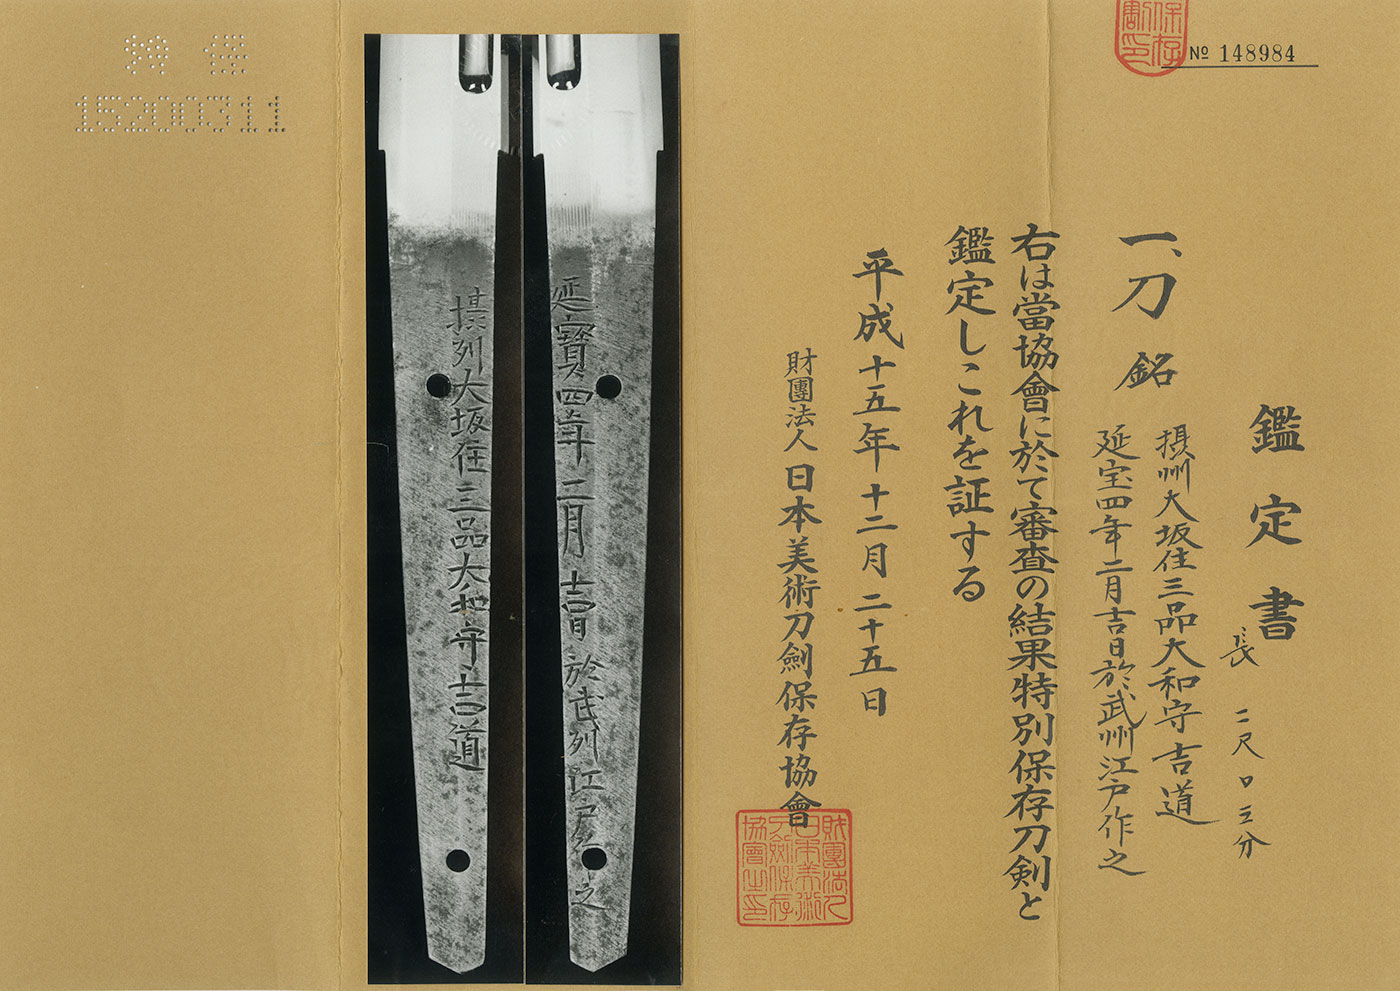 № 148984
保存
割印
鑑定書
一、刀 銘
長 二尺口三分
摂州大坂住三品大和守吉道
延宝四年二月吉日於武州江戸作之
右は當協會に於て審査の結果特別保存刀剣と
鑑定しこれを証する
平成十五年十二月二十五日
財團法人日本美術刀劍保存協會
財團法人
日本美術
刀劍保存
協會之印
延寳四年二月吉日於武列江戸之
摂列大坂住三品大和守吉道
特保
15200311